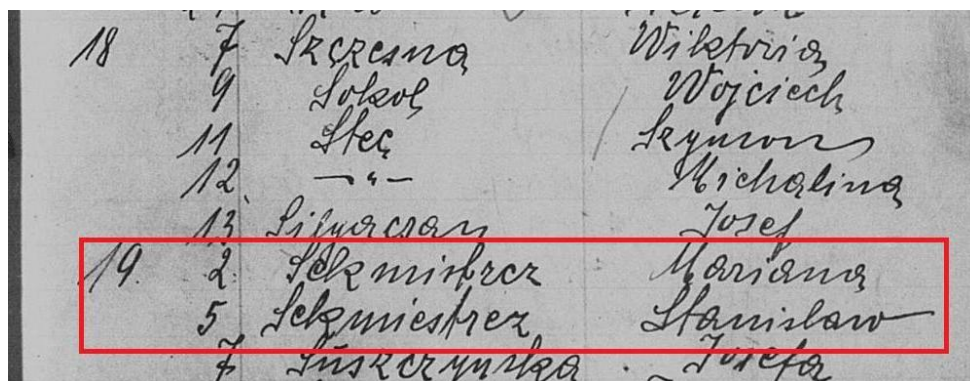 18 7 Szczesna Wiktoria
9 Sokol Wojciech
11 Stec Szymon
12 — " — Michalina
13 Josef
19. 2. Sekmistrcz Mariana
5 Sekmiestrez Stanislaw
7 Suszczynska Josefa